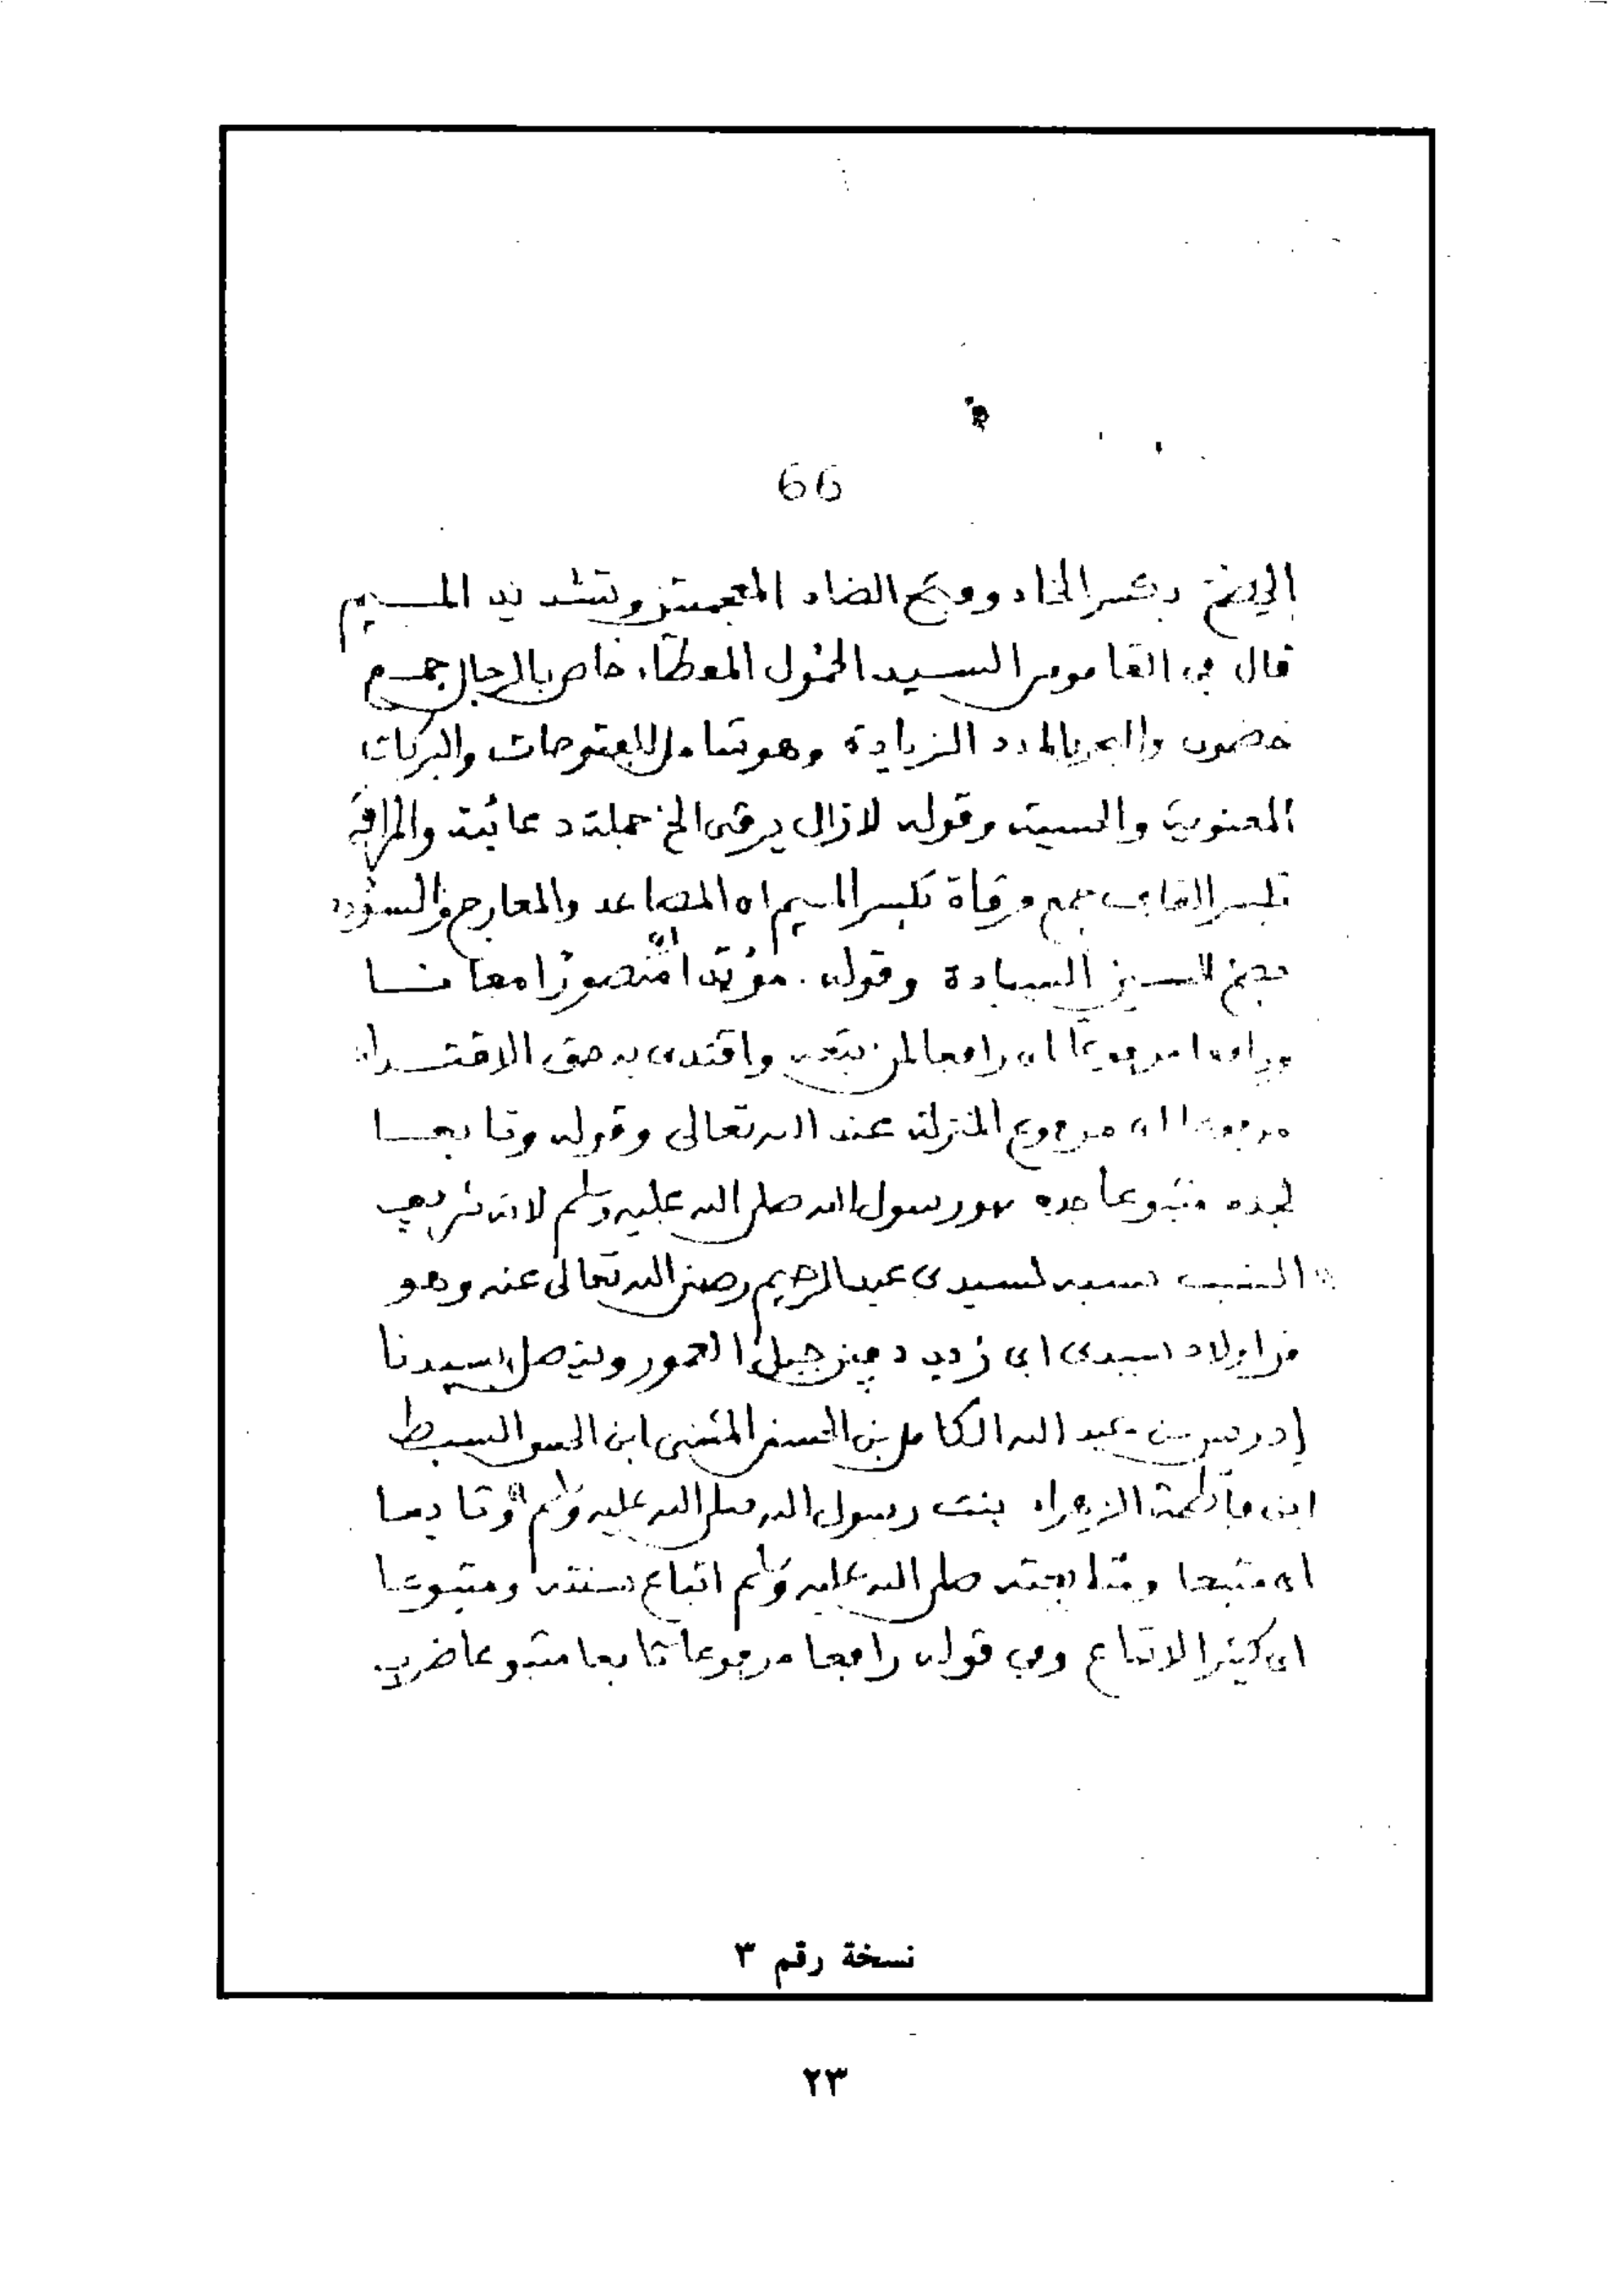 66
الخضم بكسر الخاء وفتح الضاد المعجمتين وتشديد الميم
قال في القاموس السيد الحمول المعطاء خاص بالرجال جمع
خضمون والبحر بالمدد الزيادة وهو شامل للفتوحات والبركات
المعنوية والحسية وقوله لازال يرقى الخ جملة دعائية والمراقي
بكسر القاف جمع مرقاة بكسر الميم اى المصاعد والمعارج والسؤدد
بضم السين السيادة وقوله مؤيدا منصورا معانا
ورافعا مرفوعا اى رافعا لمن يتبعه واقتدى به حق الاقتداء
مرفوعا اى مرفوع المنزلة عند الله تعالى وقوله وتابعا
لجده متبوعا جده هو رسول الله صلى الله عليه وسلم لانه شريف
النسب نسبه لسيدى عبد الرحيم رضى الله تعالى عنه وهو
من اولاد سيدى ابى زيد دفين جبل العمور ويتصل بسيدنا
إدريس بن عبد الله الكامل بن الحسن المثنى ابن الحسن السبط
ابن فاطمة الزهراء بنت رسول الله صلى الله عليه وسلم وتابعا
اى متبعا ومتابعته صلى الله عليه وسلم اتباع سنته ومتبوعا
اى كثير الاتباع وفي قوله رافعا مرفوعا تابعا متبوعا ضرب
نسخة رقم ٣
٢٣